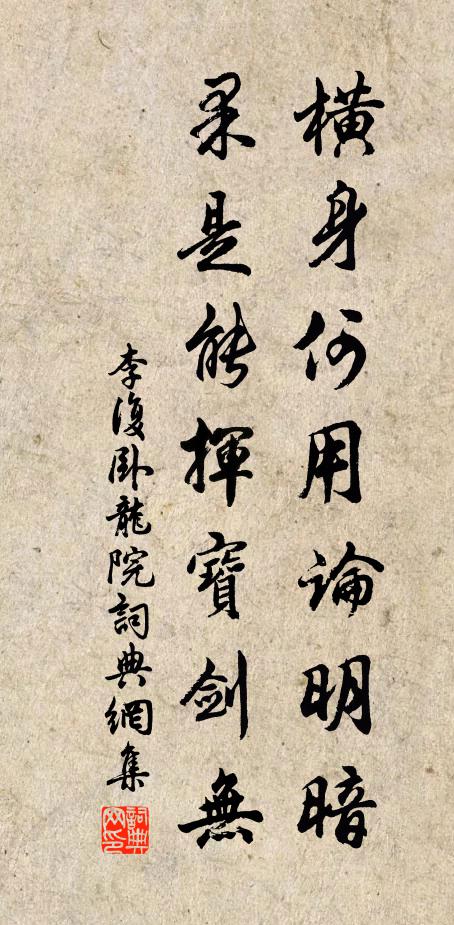 橫身何用論明暗
果是能揮寶劍無
李復臥龍院詞典網集
詞典网印